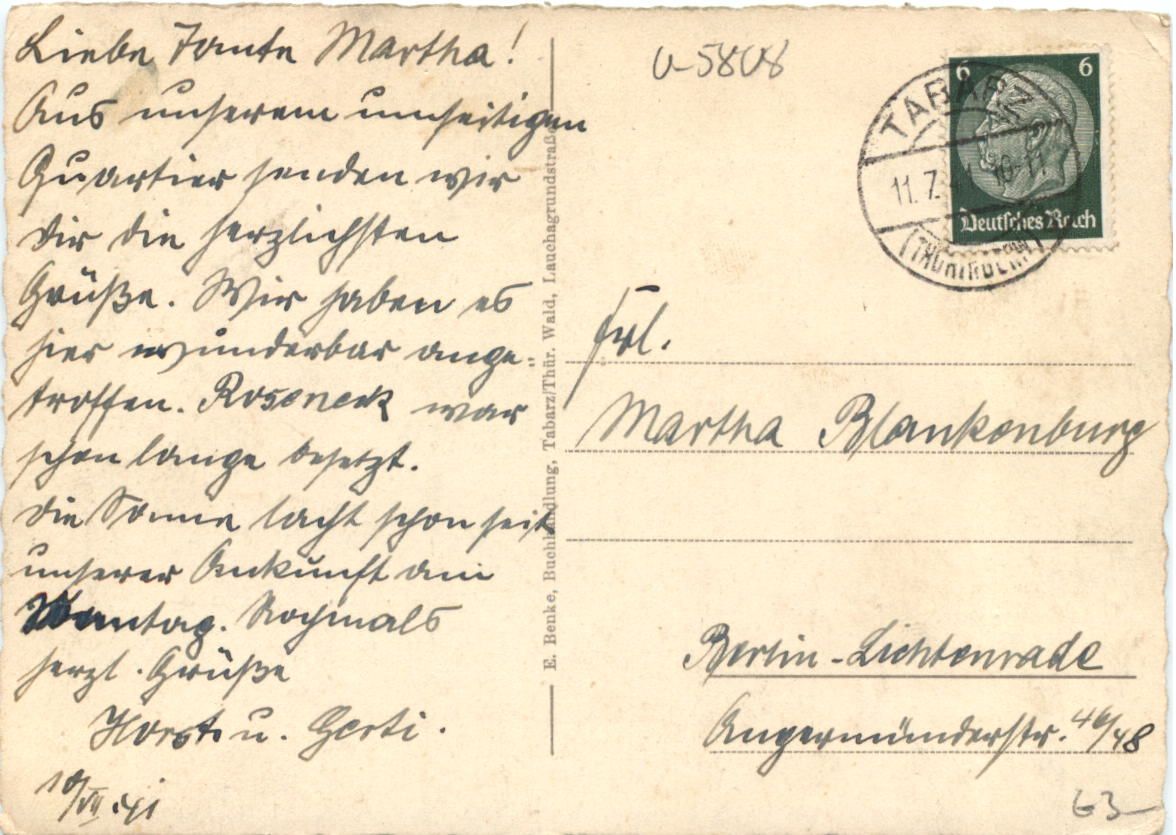 Liebe Tante Martha!
Aus unserem umseitigen
Quartier senden wir
Dir die herzlichsten
Grüße. Wir haben es
hier wunderbar ange-
troffen. Roseneck war
schon lange besetzt.
Die Sonne lacht schon seit
unserer Ankunft am
Montag. Nochmals
herzl. Grüße
Horst u. Gerti.
10/VII 41
E. Benke, Buchhandlung, Tabarz/Thür. Wald, Lauchagrundstraße
U-5808
6 6
Deutsches Reich
TABARZ
11.7.41 10-11
(THÜRINGEN)
Frl.
Martha Blankenburg
Berlin-Lichtenrade
Angermünderstr. 46/48
63